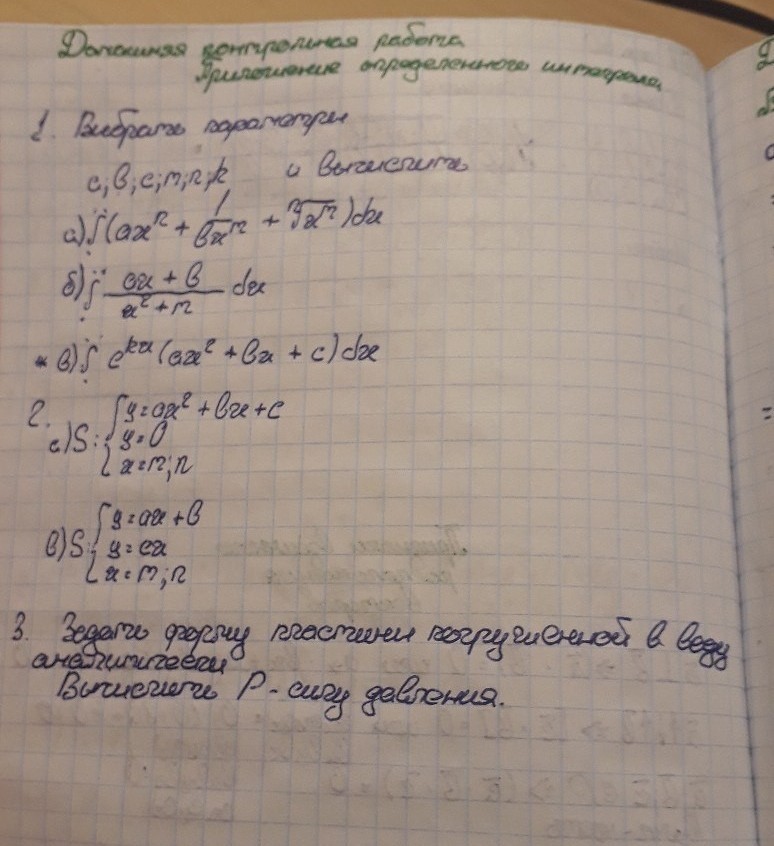 Домашняя контрольная работа
Приложение определенного интеграла
1. Выбрать параметры
a; b; c; m; n; k и вычислить
а) ∫(ax^n + 1/(bx^m) + ⁿ√(x^m))dx
б) ∫ (ax + b)/(x² + n) dx
в) ∫ e^{kx}(ax² + bx + c)dx
2.
а) S: { y = ax² + bx + c
y = 0
x = m; n
в) S: { y = ax + b
y = cx
x = m; n
3. Задать форму пластины погруженной в воду
аналитически
Вычислить P - силу давления.